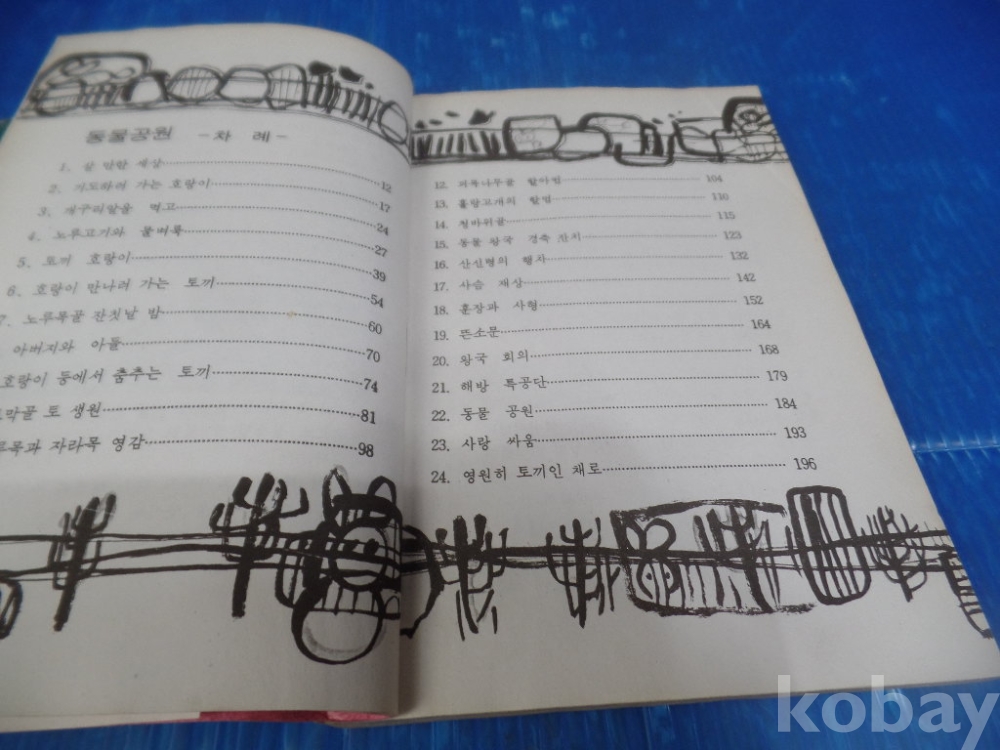 동물공원 -차 례-
1. 살 만한 세상
2. 기도하러 가는 호랑이 12
3. 개구리알을 먹고 17
4. 노루고기와 물벼룩 24
5. 토끼 호랑이 27
6. 호랑이 만나러 가는 토끼 39
7. 노루목골 잔칫날 밤 54
아버지와 아들 60
호랑이 등에서 춤추는 토끼 70
토 생원 74
자라목 영감 81
98
12. 할아범 104
13. 홀랑고개의 할멈 110
14. 청바위골 115
15. 동물 왕국 경축 잔치 123
16. 산신령의 행차 132
17. 사슴 재상 142
18. 훈장과 사형 152
19. 뜬소문 164
20. 왕국 회의 168
21. 해방 특공단 179
22. 동물 공원 184
23. 사랑 싸움 193
24. 영원히 토끼인 채로 196
kobay